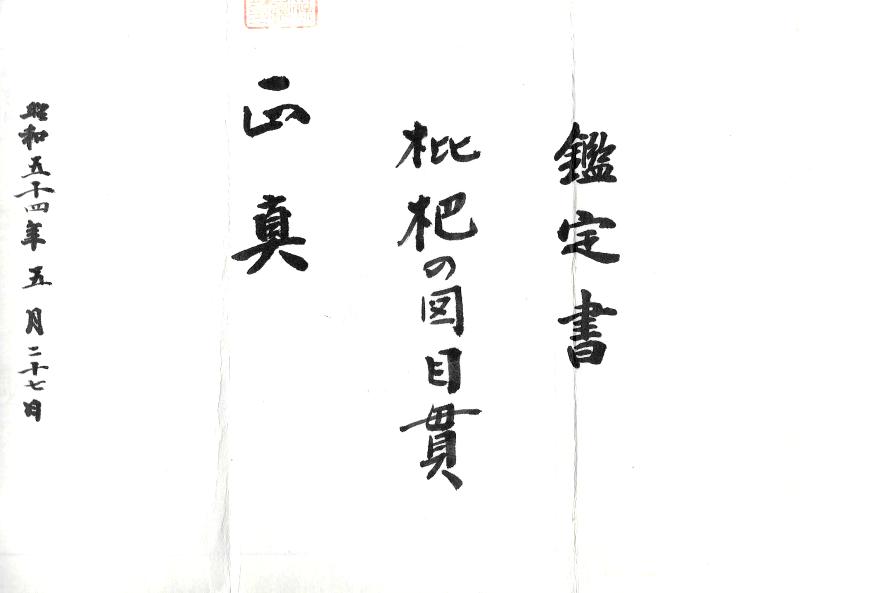 鑑定書
枇杷の図目貫
正真
昭和五十四年五月二十七日